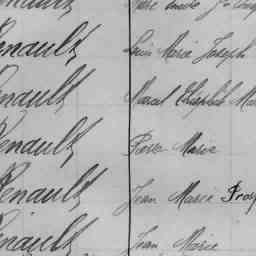 Renault Louis Marie Joseph
Renault Marcel Théophile
Renault Pierre Marie
Renault Jean Marie
Renault Jean Marie